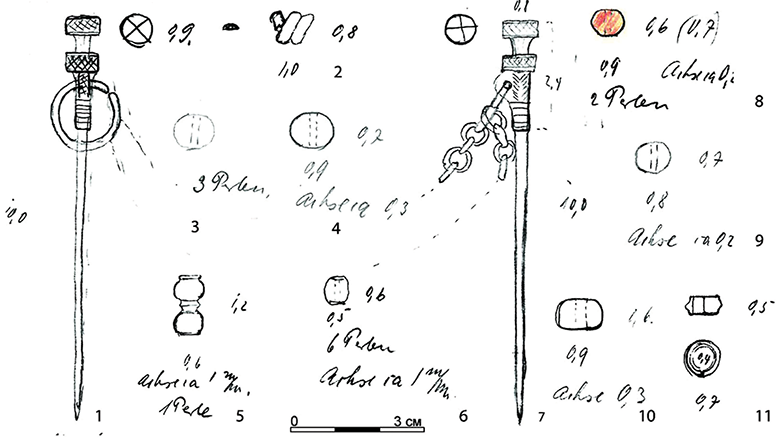 0,9.
0,8
1,0
2
0,6 (0,7)
0,9
2 Perlen
8
2,4
10,0
1
3 Perlen,
3
0,7
0,9
Achse ca 0,3
4
0,7
0,8
Achse ca 0,2
9
10,0
1,2
0,6
Achse ca 1 m/m.
1 Perle
5
0,6
0,5
6 Perlen
Achse ca 1 m/m.
6
7
0,6.
0,9
Achse 0,3
10
0,5
0,4
0,7
11
0
3 см